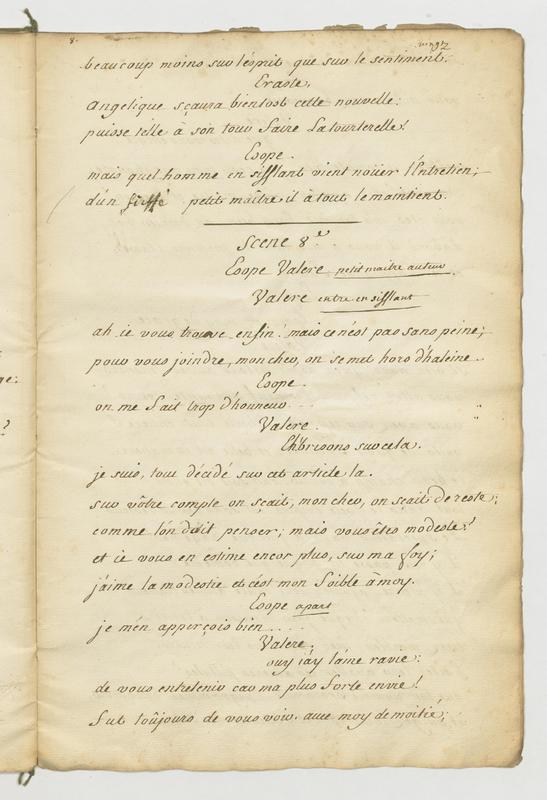 8.
beaucoup moins sur l'esprit que sur le sentiment.
Eraste.
Angelique sçaura bientost cette nouvelle.
puisse t'elle à son tour faire La tourterelle!
Esope.
mais quel homme en sifflant vient noüer l'Entretien;
d'un petit maître il à tout le maintient.
Scene 8e
Esope Valere petit maitre auteur
Valere entre en sifflant
ah ie vous trouve enfin! mais ce n'est pas sans peine;
pour vous joindre, mon cher, on se met hors d'haleine.
Esope.
on me fait trop d'honneur...
Valere.
Eh! brisons sur cela.
je suis, tout décidé sur cet article la.
sur vôtre compte on sçait, mon cher, on sçait de reste;
comme l'on doit penser; mais vous êtes modeste!
et ie vous en estime encor plus, sur ma foy;
j'aime la modestie et c'est mon foible à moy.
Esope apart
je m'en apperçois bien....
Valere.
ouy i'ay l'ame ravie:
de vous entretenir car ma plus forte envie!
fut toûjours de vous voir. avec moy de moitié;